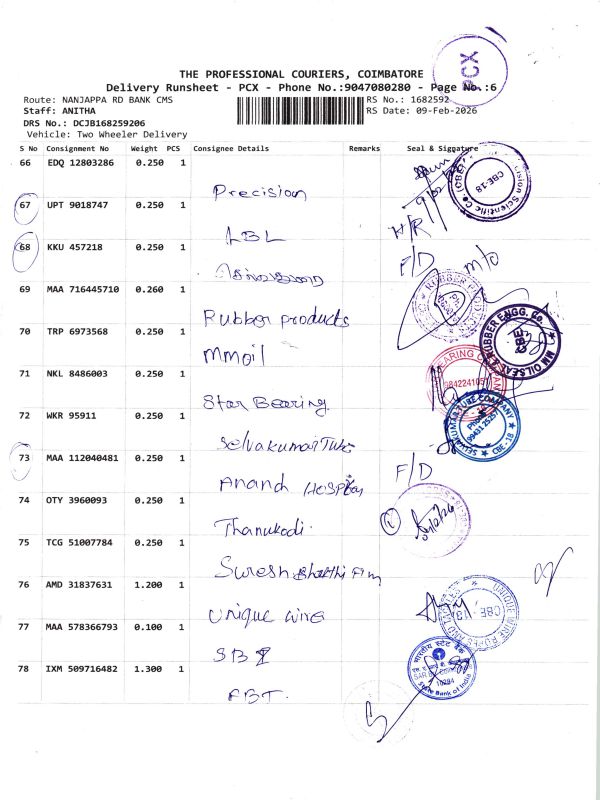 PCX
THE PROFESSIONAL COURIERS, COIMBATORE
Delivery Runsheet - PCX - Phone No.:9047080280 - Page No.:6
Route: NANJAPPA RD BANK CMS
RS No.: 1682592
Staff: ANITHA
RS Date: 09-Feb-2026
DRS No.: DCJB168259206
Vehicle: Two Wheeler Delivery
S No Consignment No Weight PCS Consignee Details Remarks Seal & Signature
66 EDQ 12803286 0.250 1
Precision
CBE-18
67 UPT 9018747 0.250 1
LBL
H/R
68 KKU 457218 0.250 1
F/D
m/c
69 MAA 716445710 0.260 1
Rubber products
70 TRP 6973568 0.250 1
mmoil
MM OIL SEAL & RUBBER ENGG. Co. CBE
71 NKL 8486003 0.250 1
Star Bearing
72 WKR 95911 0.250 1
Selvakumar Tube
SELVAKUMAR TUBE COMPANY CBE-18
73 MAA 112040481 0.250 1
Anand Hospital
F/D
74 OTY 3960093 0.250 1
Thanukodi.
75 TCG 51007784 0.250 1
Suresh
76 AMD 31837631 1.200 1
Unique wire
UNIQUE WIRE ROPES AND
77 MAA 578366793 0.100 1
SBI
भारतीय स्टेट बैंक
State Bank of India
78 IXM 509716482 1.300 1
FBT.